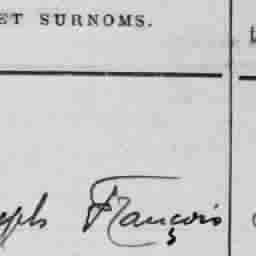 ET SURNOMS.
eph François